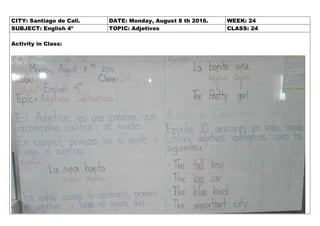 CITY: Santiago de Cali. DATE: Monday, August 8 th 2016. WEEK: 24
SUBJECT: English 4° TOPIC: Adjetives CLASS: 24
Activity in Class:
Monday, August 8th 2016.
Class
Subject: English 4°
Topic: Adjetivos Calificativos
El Adjetivo, es una palabra que
acompaña (califica) al sujeto.
En español, primero va el sujeto y
luego el adjetivo.
La niña bonita
Sujeto Adjetivo
En ingles ocurre lo contrario, primero
el adjetivo y luego el sujeto, así:
Ejemplo:
La bonita niña
Adjetivo Sujeto
The Pretty girl
Activity in Class
Escribe 10 oraciones en ingles, donde
utilices adjetivos calificativos como los
siguientes:
The tall boy
The big car
The blue bird
The important city